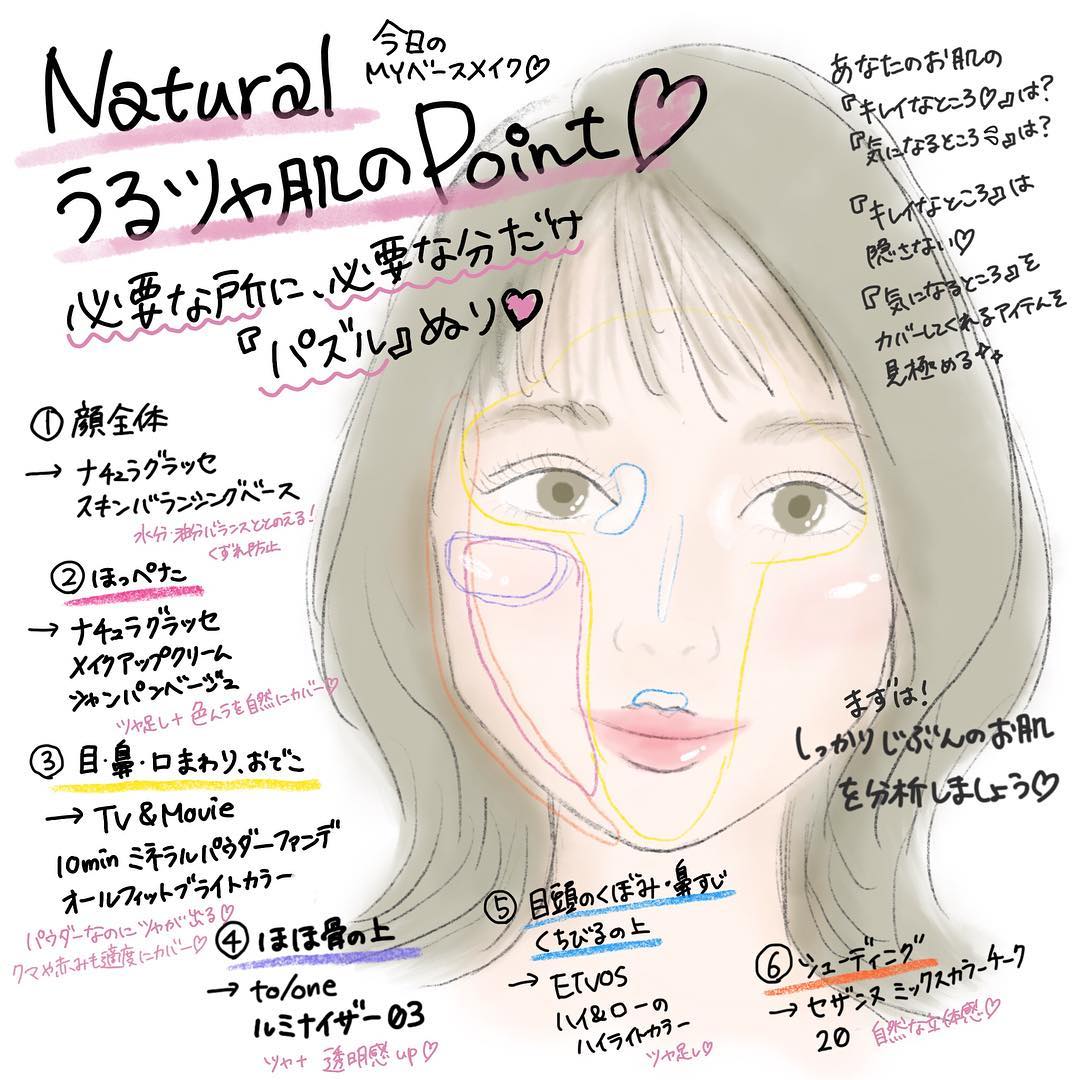 Natural
今日の
MYベースメイク♡
うるツヤ肌のPoint♡
必要な所に、必要な分だけ
『パズル』ぬり♡
あなたのお肌の
『キレイなところ♡』は?
『気になるところ』は?
『キレイなところ』は
隠さない♡
『気になるところ』を
カバーしてくれるアイテムを
見極める
① 顔全体
→ ナチュラグラッセ
スキンバランシングベース
水分・油分バランスととのえる!
くずれ防止
② ほっぺた
→ ナチュラグラッセ
メイクアップクリーム
シャンパンベージュ
ツヤ足し+色ムラを自然にカバー♡
③ 目・鼻・口まわり、おでこ
→ TV & Movie
10min ミネラルパウダーファンデ
オールフィットブライトカラー
パウダーなのにツヤが出る♡
クマや赤みも適度にカバー♡
④ ほほ骨の上
→ to/one
ルミナイザー 03
ツヤ+透明感 up♡
⑤ 目頭のくぼみ・鼻すじ
くちびるの上
→ ETVOS
ハイ&ローの
ハイライトカラー
ツヤ足し♡
⑥ シェーディング
→ セザンヌ ミックスカラーチーク
20 自然な立体感♡
まずは!
しっかりじぶんのお肌
を分析しましょう♡